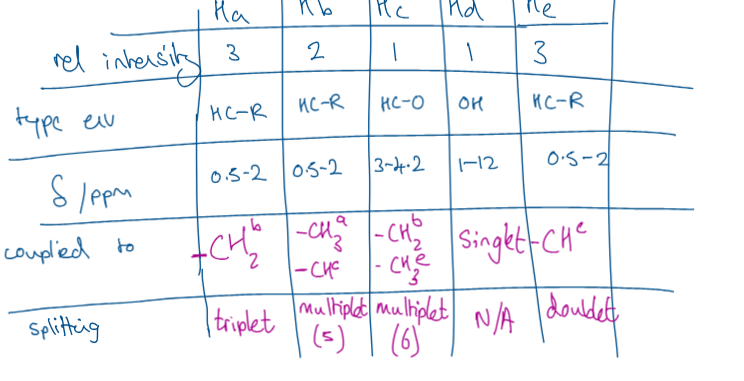 Ha Hb Hc Hd He
rel intensity 3 2 1 1 3
type env HC-R HC-R HC-O OH HC-R
δ/ppm 0.5-2 0.5-2 3-4.2 1-12 0.5-2
coupled to -CH₂ᵇ -CH₃ᵃ -CHᶜ -CH₂ᵇ -CH₃ᵉ singlet -CHᶜ
splitting triplet multiplet (5) multiplet (6) N/A doublet